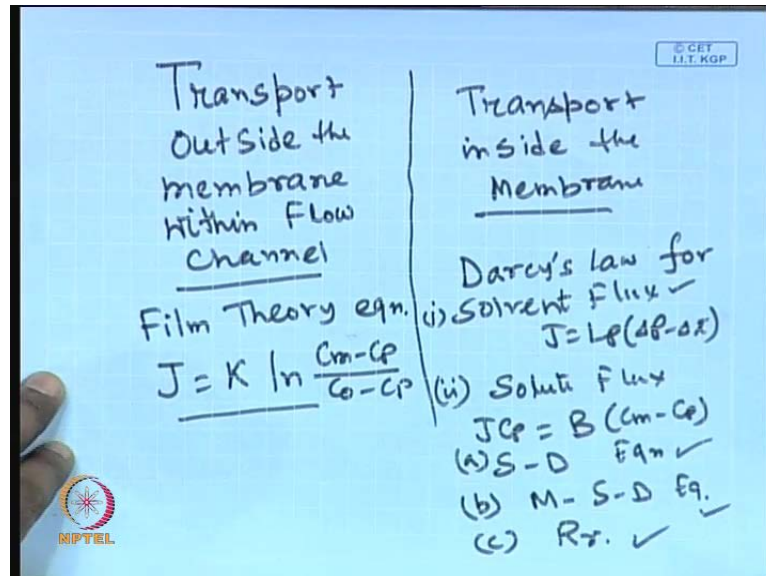 © CET
I.I.T. KGP
Transport
Outside the
membrane
Within Flow
Channel
Film Theory eqn.
J = K ln (Cm-Cp)/(Co-Cp)
Transport
inside the
Membrane
Darcy's law for
(i) Solvent Flux ✓
J = Lp(ΔP-Δπ)
(ii) Solute Flux
JCp = B (Cm-Cp)
(a) S-D Eqn ✓
(b) M-S-D Eq. ✓
(c) Rr. ✓
NPTEL